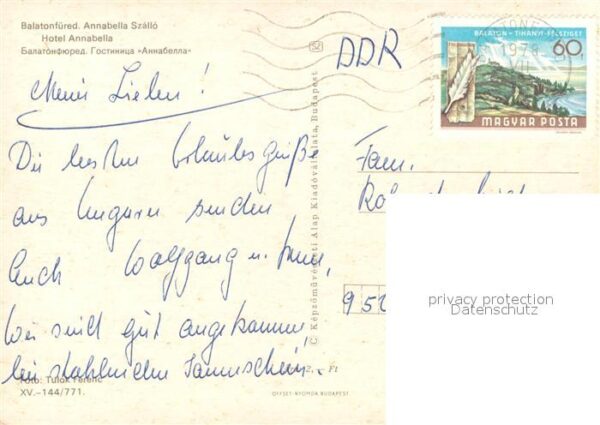 Balatonfüred. Annabella Szálló
Hotel Annabella
Балатонфюред. Гостиница «Аннабелла»
Meine Lieben!
Die besten Urlaubsgrüße
aus Ungarn senden
Euch Wolfgang u.
Wir sind gut angekommen
bei strahlendem Sonnenschein.
Foto: Tulok Ferenc
XV.-144/771.
C Képzőművészeti Alap Kiadóvállalata, Budapest
2.- Ft
OFFSET-NYOMDA BUDAPEST
DDR
BALATON - TIHANYI - FÉLSZIGET
60
MAGYAR POSTA
1979
VII
Fam.
952
privacy protection
Datenschutz